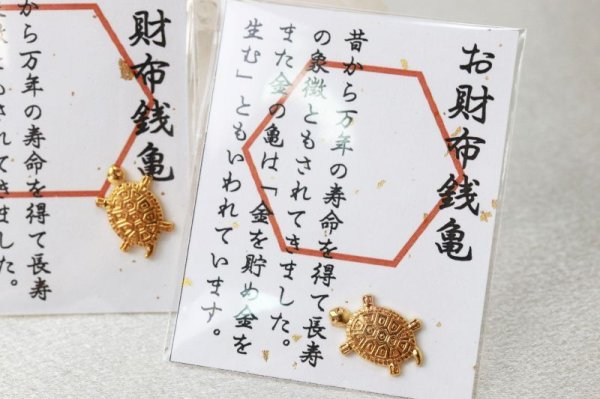 お財布銭亀
昔から万年の寿命を得て長寿
の象徴ともされてきました。
また金の亀は「金を貯め金を
生む」ともいわれています。
財布銭亀
から万年の寿命を得て長寿
されてきました。